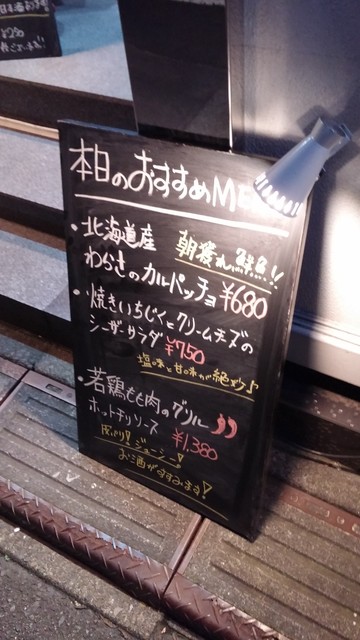 本日のおすすめME
・北海道産 朝獲れ
わらさのカルパッチョ ¥680
・焼きいちじくとクリームチーズの
シーザーサラダ ¥750
塩味と甘味が絶妙♪
・若鶏もも肉のグリル
ホットチリソース ¥1,380
ジューシー!
お酒がすすみます!